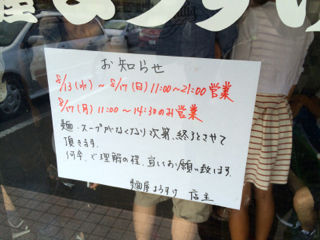 屋ようすけ
お知らせ
8/13(水)〜8/17(日)11:00〜21:00営業
8/17(月)11:00〜14:30のみ営業
麺・スープがなくなり次第、終了とさせて
頂きます。
何卒、ご理解の程、宜しくお願い致します。
麺屋ようすけ 店主